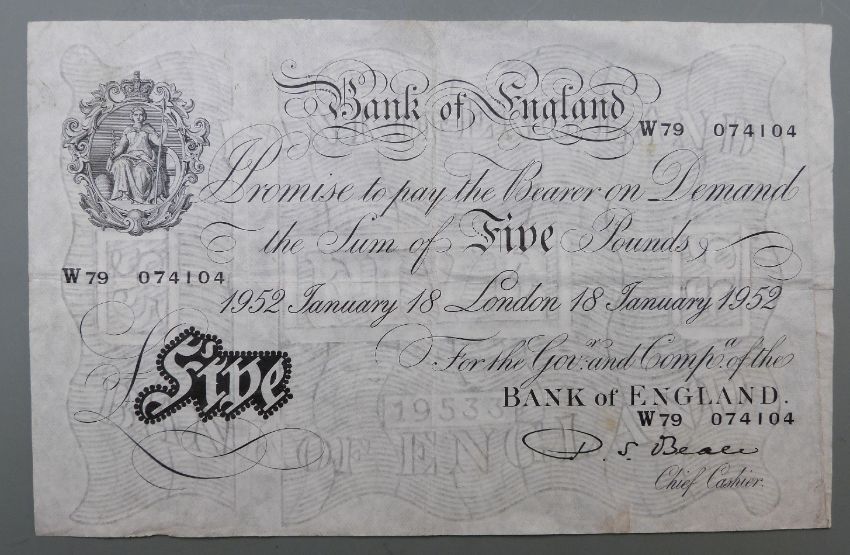 Bank of England
W79 074104
I Promise to pay the Bearer on Demand
the Sum of Five Pounds
W79 074104
1952 January 18 London 18 January 1952
For the Govr. and Compa. of the
BANK of ENGLAND.
£ Five
W79 074104
Chief Cashier.